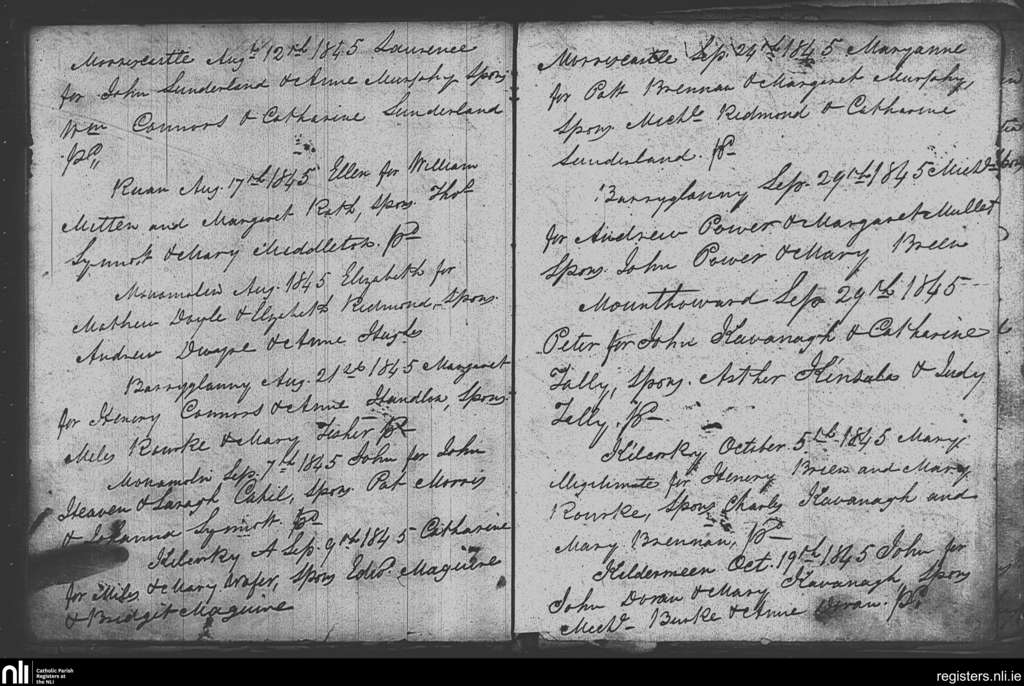 Morriscastle Augt 12th 1845 Laurence
for John Sunderland & Anne Murphy Spons
Wm Connors & Catharine Sunderland
Ruan Aug. 17th 1845 Ellen for William
Mitten and Margaret Rath, Spons. Thos
Synnott & Mary Middleton.
Monamolin Aug. 1845 Elizabeth for
Mathew Doyle & Elizabeth Redmond, Spons.
Andrew Dwyre & Anne Hughs
Barryglanny Aug. 21st 1845 Margaret
for Henery Connors & Anne Handlon, Spons.
Miles Rourke & Mary Fisher
Monamolin Sep. 7th 1845 John for John
Heaven & Saragh Cahil, Spons. Pat Morris
& Johanna Synnott.
Kilcorky A Sep. 9th 1845 Catharine
for Miles & Mary Wafer, Spons Edwd. Maguire
& Bridgit Maguire
Morriscastle Sep. 24th 1845 Maryanne
for Patt Brennan & Margaret Murphy,
Spons. Michl. Redmond & Catharine
Sunderland.
Barryglanny Sep. 29th 1845 Michl
for Andrew Power & Margaret Mullet
Spons. John Power & Mary Breen
Mounthoward Sep. 29th 1845
Peter for John Kavanagh & Catharine
Tally, Spons. Arther Kinsala & Judy
Tally.
Kilcorky October. 5th 1845 Mary
Illigitimate for Henery Breen and Mary
Rourke, Spons Charls Kavanagh and
Mary Brennan,
Kildermeen Oct. 19th 1845 John for
John Doran & Mary Kavanagh, Spons
Michl. Burke & Anne Doran.
nli Catholic Parish
Registers at
the NLI
registers.nli.ie